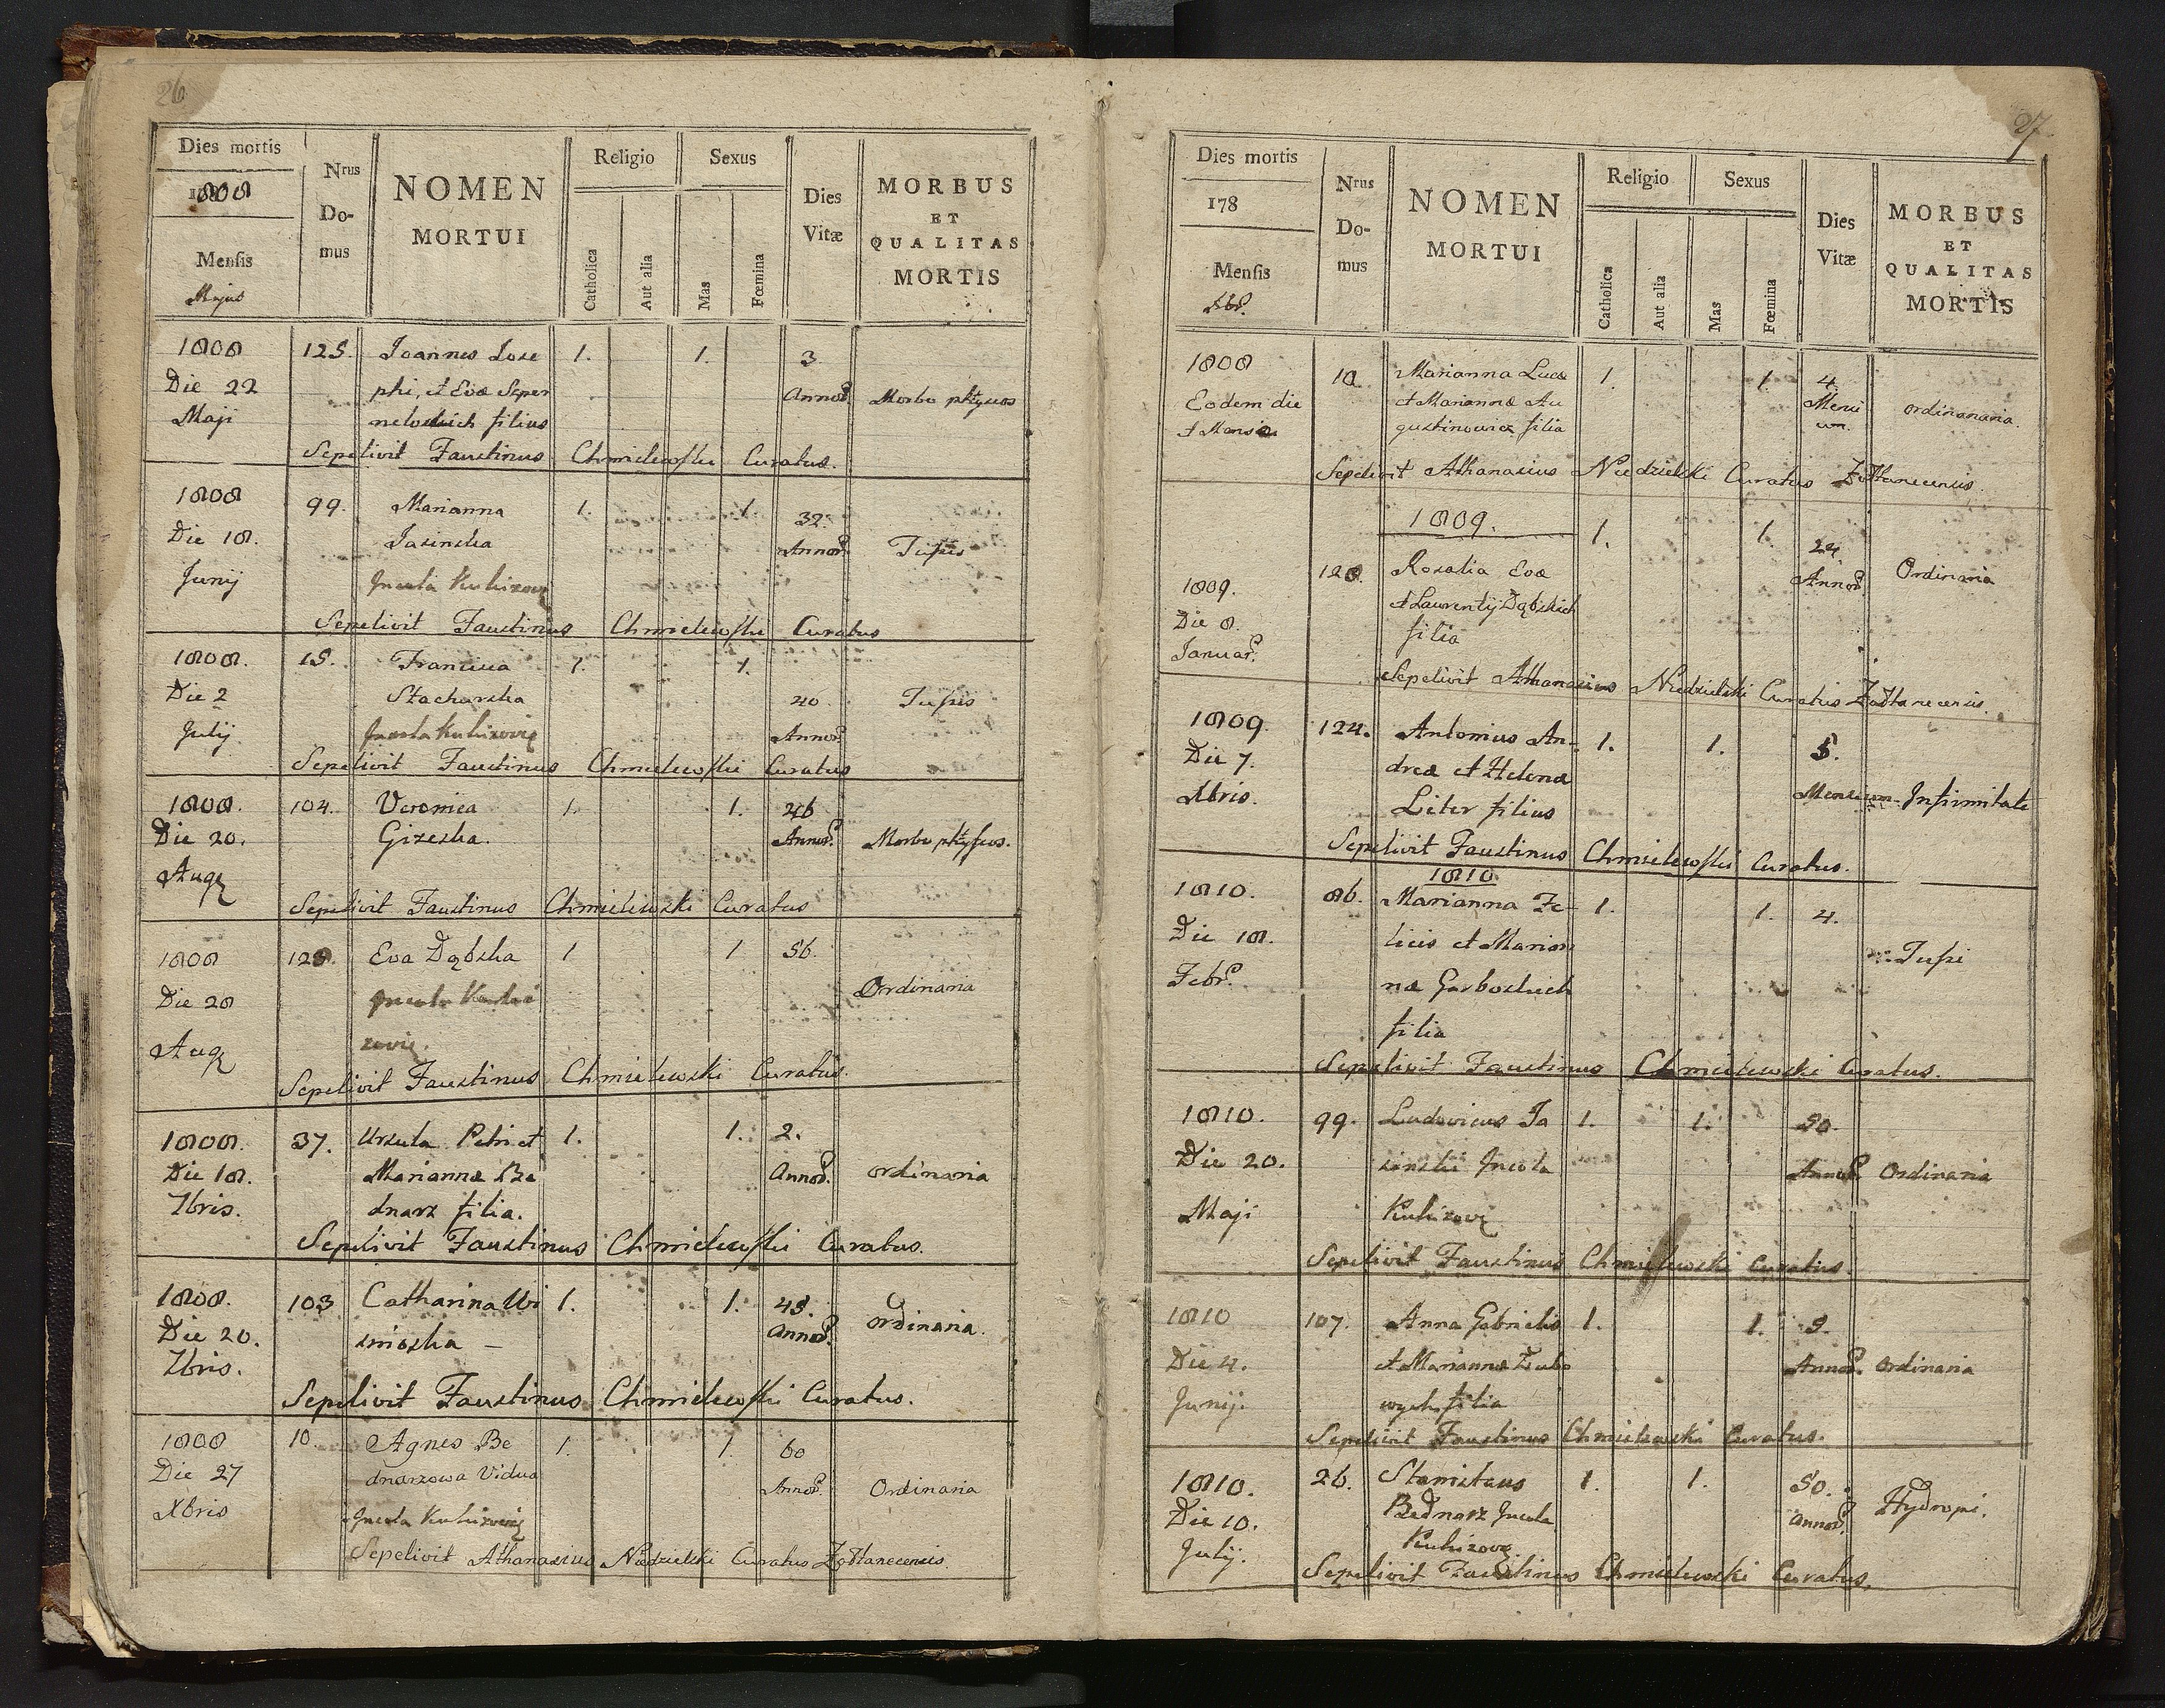 26
Dies mortis
1808
Mensis
Majus
Nrus
Do-
mus
NOMEN
MORTUI
Religio
Catholica
Aut alia
Sexus
Mas
Fœmina
Dies
Vitæ
MORBUS
ET
QUALITAS
MORTIS
1808 125. Joannes Jose 1. 1. 3
Die 22 phi, et Evæ Annor. Morbo
Maji filius
Sepelivit Faustinus Chmielewski Curatus.
1808 99. Marianna 1. 1 32.
Die 18. Jasinska Annor. Tussis
Junij Incola Kulizovię
Sepelivit Faustinus Chmielewski Curatus
1808. 15. Francisca 1. 1.
Die 2 Stachurska 40 Tussis
Julij Incola Kulizovię Annor.
Sepelivit Faustinus Chmielewski Curatus
1808. 104. Veronica 1. 1. 46
Die 20. Gizeska. Annor. Morbo
Aug
Sepelivit Faustinus Chmielewski Curatus
1808 128. Eva Dąbska 1 1 56.
Die 28 Incola Kuli Ordinaria
Aug zovię.
Sepelivit Faustinus Chmielewski Curatus.
1808. 37. Ursula Petri et 1. 1. 2.
Die 18. Mariannæ Be Annor. ordinaria
7bris. dnarz filia.
Sepelivit Faustinus Chmielewski Curatus.
1808. 103 Catharina Wi 1. 1. 45.
Die 20. snioska – Annor. ordinaria.
7bris.
Sepelivit Faustinus Chmielewski Curatus.
1808 10 Agnes Be 1. 1. 60
Die 27 dnarzowa Vidua Annor. Ordinaria
Xbris Incola Kulizovię
Sepelivit Athanasius Niedzielski Curatus Zołtanecensis.
27
Dies mortis
178
Mensis
Xbr.
Nrus
Do-
mus
NOMEN
MORTUI
Religio
Catholica
Aut alia
Sexus
Mas
Fœmina
Dies
Vitæ
MORBUS
ET
QUALITAS
MORTIS
1808 10 Marianna Lucæ 1. 1. 4.
Eodem die et Mariannæ Au Mensi ordinanaria.
et Mense gustinowicz filia um.
Sepelivit Athanasius Niedzielski Curatus Zołtanecensis.
1809.
1809. 128. Rosalia Evæ 1. 1. 24
Die 8. et Laurentij Dąbskich Annor. Ordinaria
Januar. filia
Sepelivit Athanasius Niedzielski Curatus Zołtanecensis.
1809 124. Antonius An- 1. 1. 5.
Die 7. dreæ et Helenæ
Xbris. Liter filius Mensium Infirmitate
Sepelivit Faustinus Chmielewski Curatus.
1810
1810. 86. Marianna Fe- 1. 1. 4.
Die 18. licis et Marian Tussi
Febr. næ Garboskich
filia
Sepelivit Faustinus Chmielewski Curatus.
1810. 99. Ludovicus Ja 1. 1. 50.
Die 20. sinski Incola Annor. Ordinaria
Maji Kulizovię
Sepelivit Faustinus Chmielewski Curatus.
1810 107. Anna Gabrielis 1. 1. 9.
Die 4. et Mariannæ Zubo Annor. Ordinaria
Junij. wych filia
Sepelivit Faustinus Chmielewski Curatus.
1810. 26. Stanislaus 1. 1. 50.
Die 10. Bednarz Incola Annor. Hydropi.
Julij. Kulizovię
Sepelivit Faustinus Chmielewski Curatus.